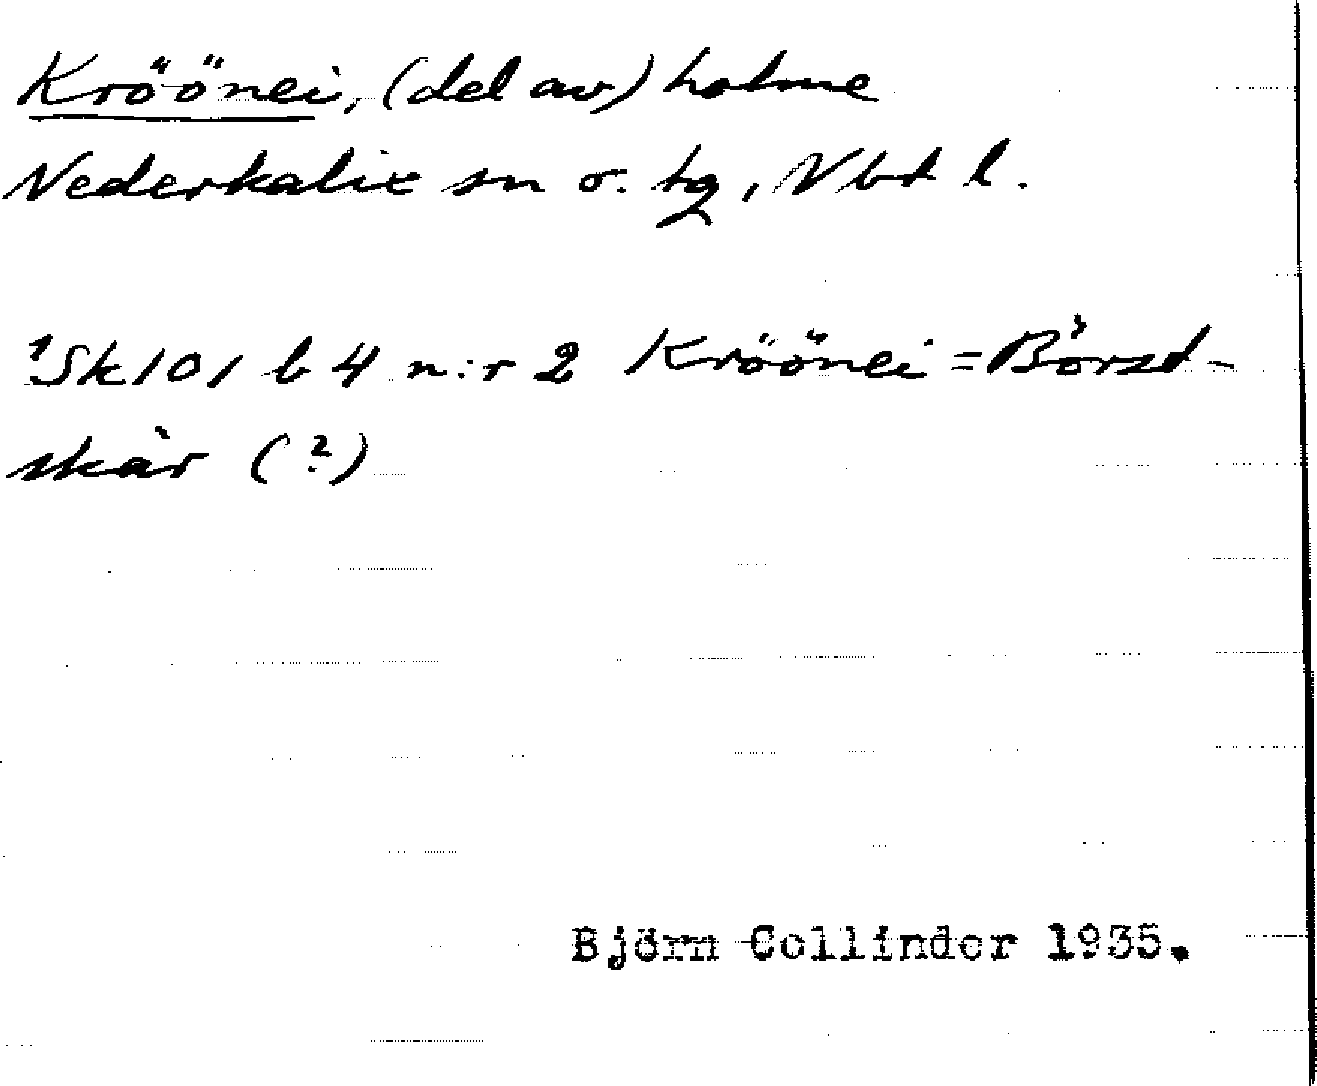 Kröönei, (del av) holme
Nederkalix sn o. tg, Vbt l.
1Sk101 b 4 n:r 2 Kröönei = Börst-
skär (?)
Björn Collinder 1935.